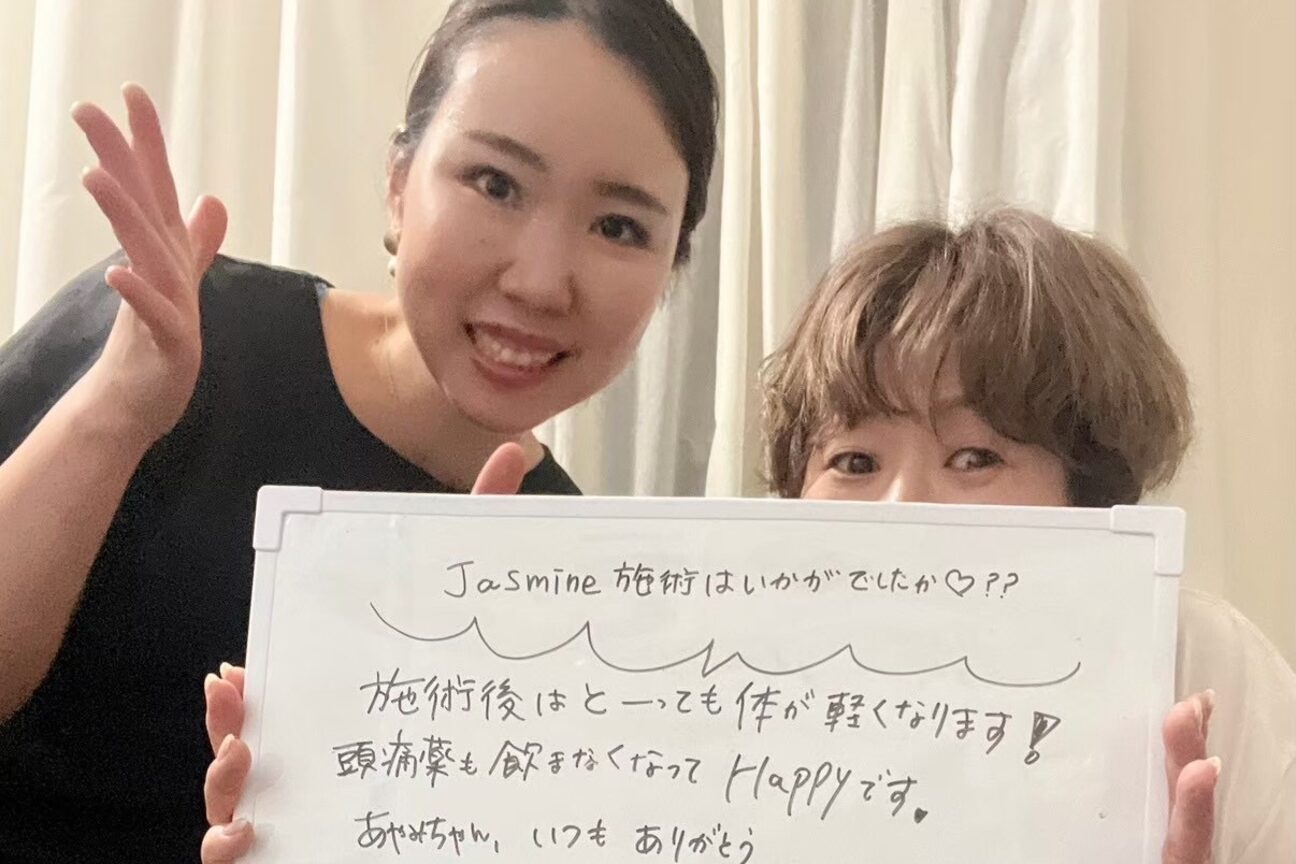 Jasmine 施術はいかがでしたか♡??
施術後はとーっても体が軽くなります!
頭痛薬も飲まなくなってHappyです。
あやみちゃん、いつもありがとう